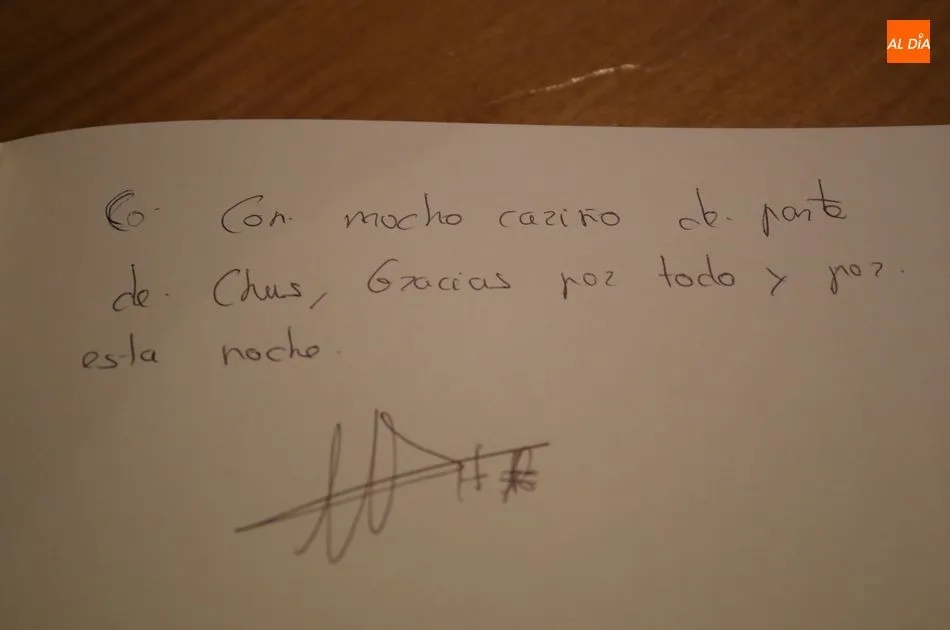 AL DÍA
Co. Con. mucho cariño de. parte
de. Chus, Gracias por todo y por.
esta noche.